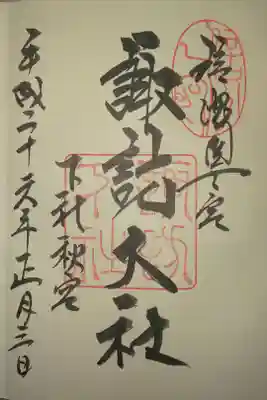 信濃國一宮
諏訪大社
下社秋宮
平成二十六年正月三日